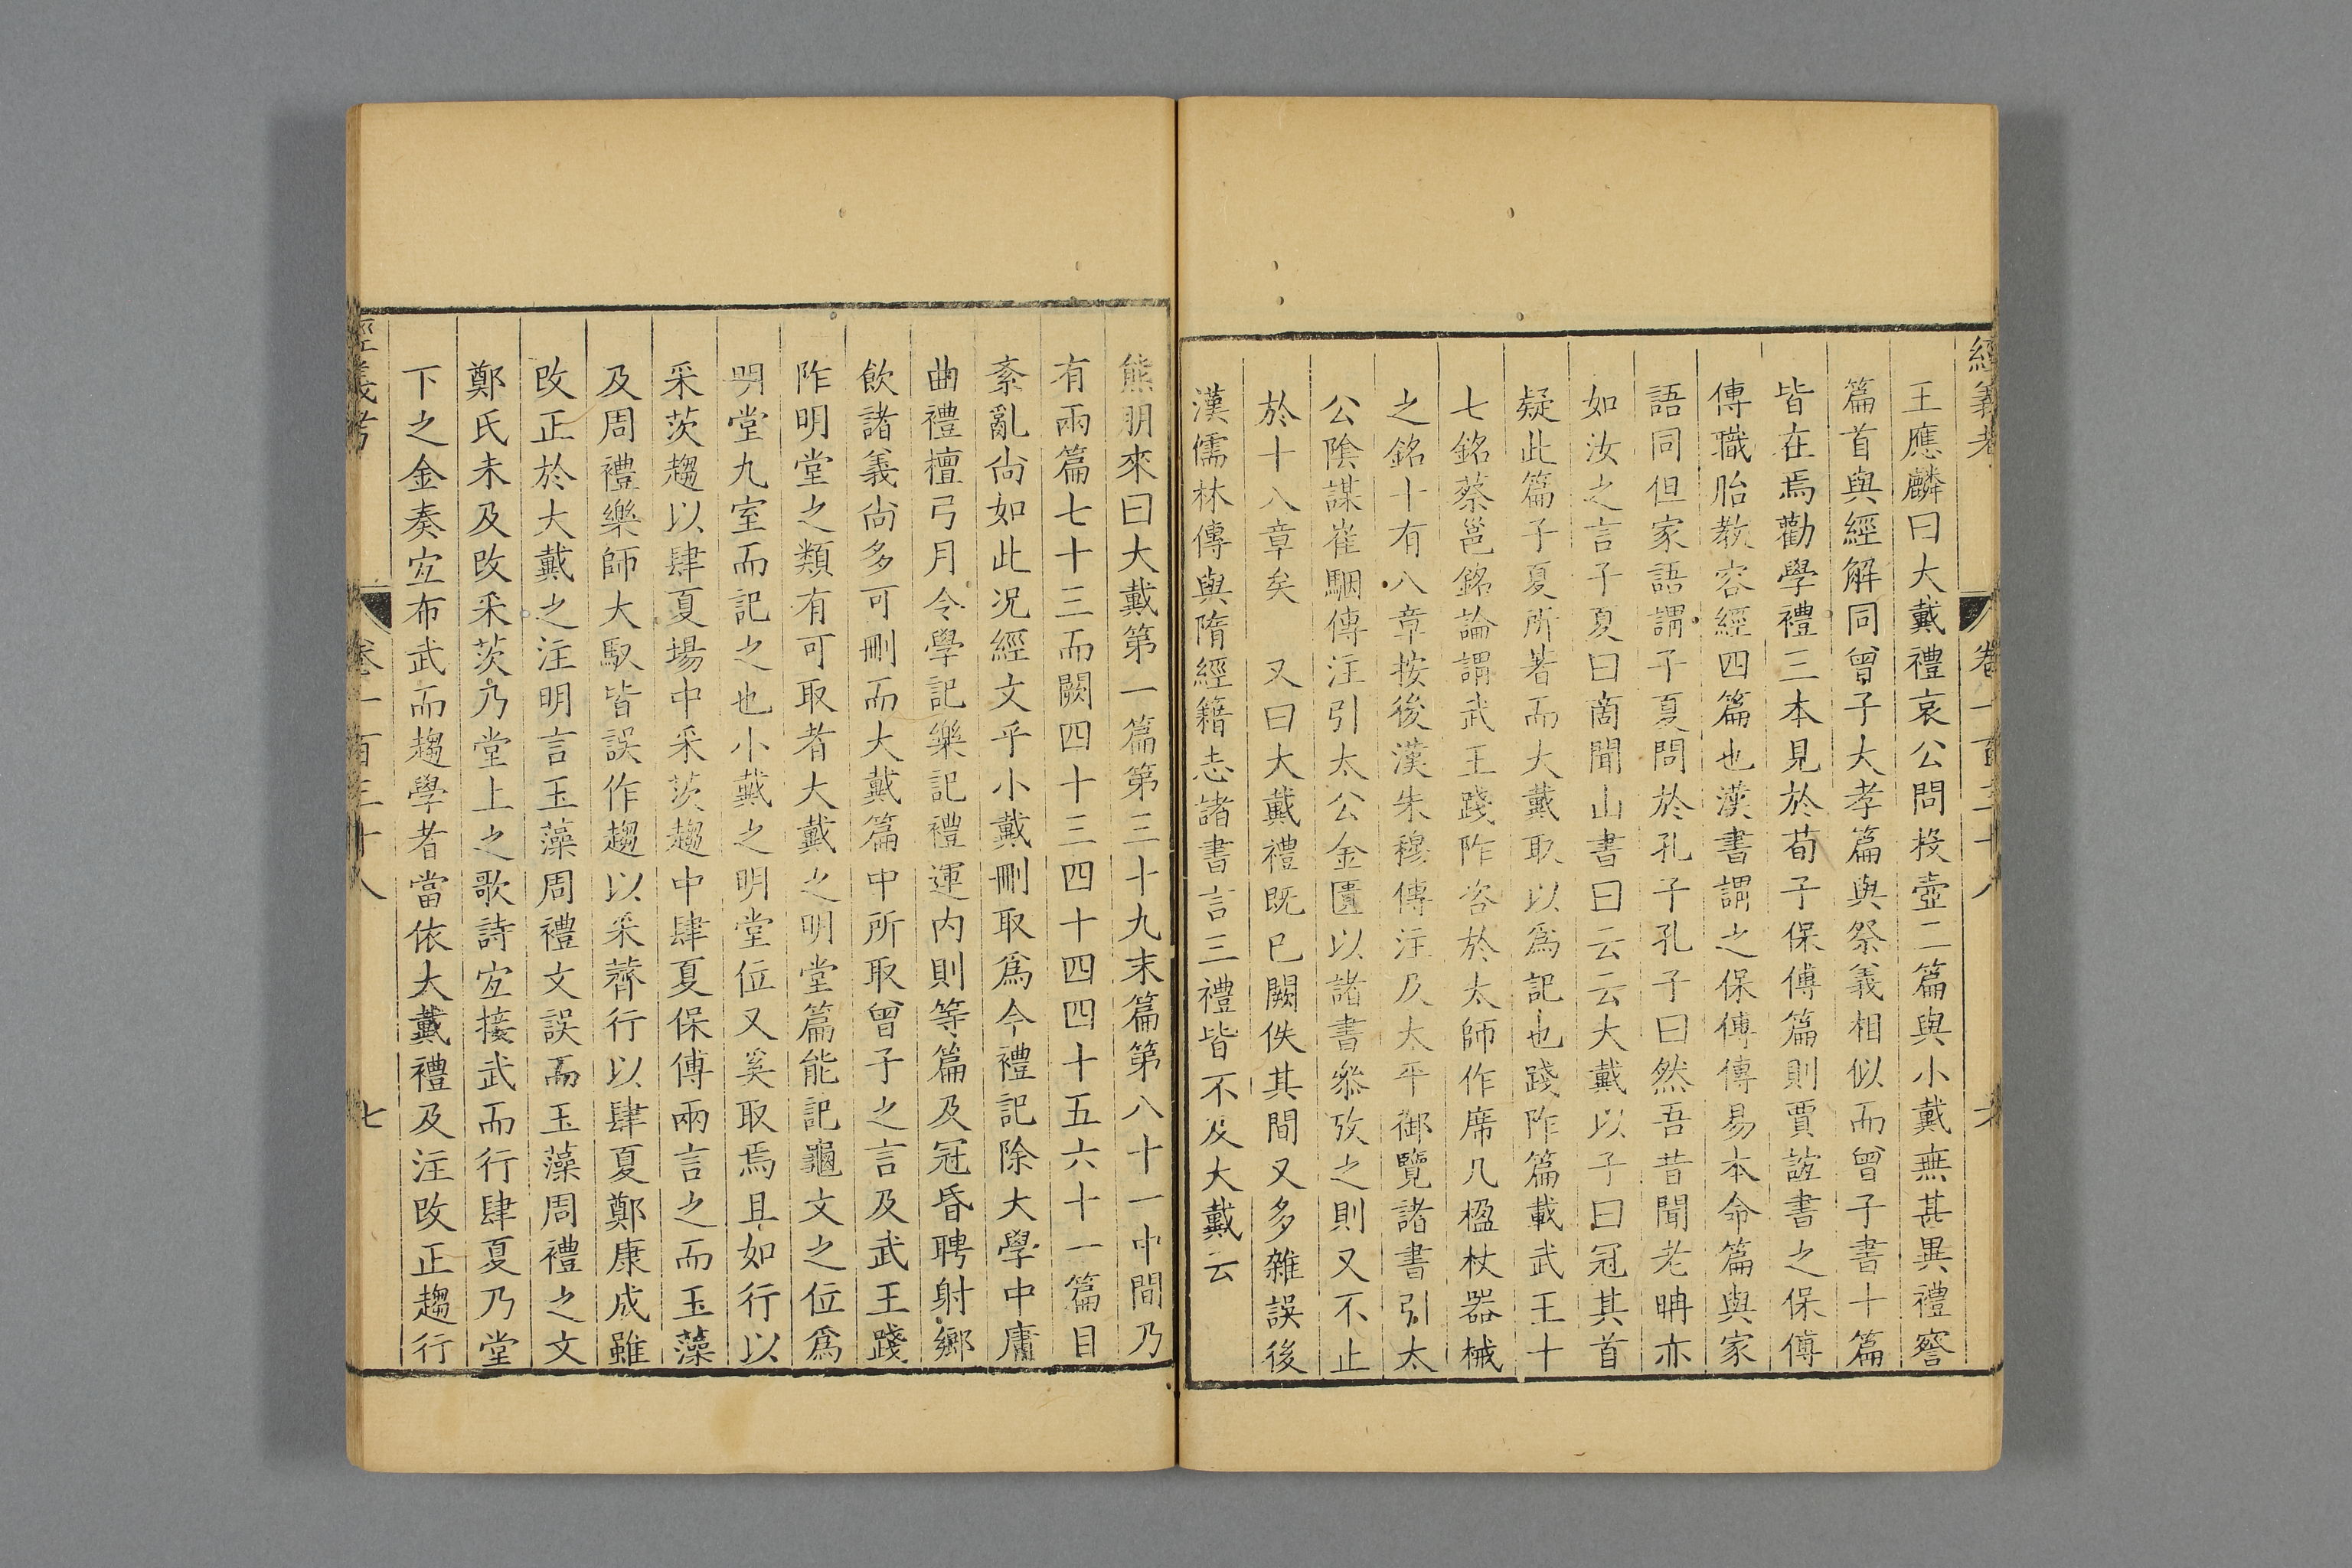 經義考 卷一百三十八 六
王應麟曰大戴禮哀公問投壺二篇與小戴無甚異禮察
篇首與經解同曾子大孝篇與祭義相似而曾子書十篇
皆在焉勸學禮三本見於荀子保傅篇則賈誼書之保傅
傳職胎教容經四篇也漢書謂之保傅傳易本命篇與家
語同但家語謂子夏問於孔子孔子曰然吾昔聞老聃亦
如汝之言子夏曰商聞山書曰云云大戴以子曰冠其首
疑此篇子夏所著而大戴取以爲記也踐阼篇載武王十
七銘蔡邕銘論謂武王踐阼咨於太師作席几楹杖器械
之銘十有八章按後漢朱穆傳注及太平御覽諸書引太
公陰謀崔駰傳注引太公金匱以諸書叅攷之則又不止
於十八章矣 又曰大戴禮既已闕佚其間又多雜誤後
漢儒林傳與隋經籍志諸書言三禮皆不及大戴云
熊朋來曰大戴第一篇第三十九末篇第八十一中間乃
有兩篇七十三而闕四十三四十四四十五六十一篇目
紊亂尙如此况經文乎小戴刪取爲今禮記除大學中庸
曲禮檀弓月令學記樂記禮運内則等篇及冠昏聘射鄉
飲諸義尙多可刪而大戴篇中所取曾子之言及武王踐
阼明堂之類有可取者大戴之明堂篇能記龜文之位爲
明堂九室而記之也小戴之明堂位又奚取焉且如行以
采茨趨以肆夏場中采茨趨中肆夏保傅兩言之而玉藻
及周禮樂師大馭皆誤作趨以采薺行以肆夏鄭康成雖
改正於大戴之注明言玉藻周禮文誤而玉藻周禮之文
鄭氏未及改采茨乃堂上之歌詩宐接武而行肆夏乃堂
下之金奏宐布武而趨學者當依大戴禮及注改正趨行
經義考 卷一百三十八 七